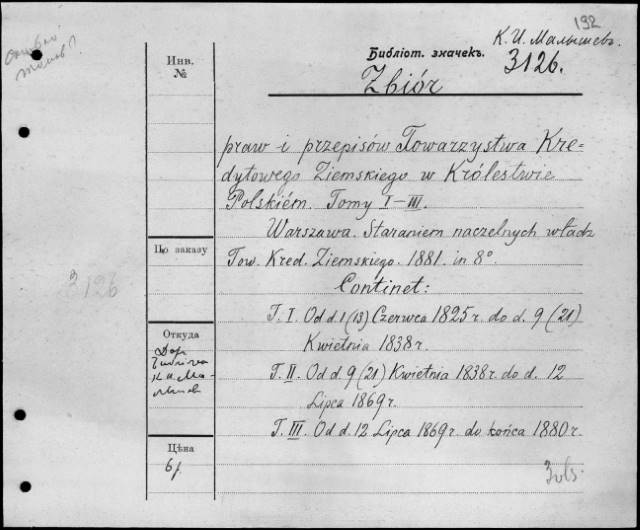 192
К. И. Малышевъ.
Библіот. значекъ. 3126.
Инв.
№
Zbiór
praw i przepisów Towarzystwa Kre-
dytowego Ziemskiego w Królestwie
Polskiém. Tomy I–III.
Warszawa. Staraniem naczelnych władz
По заказу
Tow. Kred. Ziemskiego. 1881. in 8º
3126
Continet:
T. I. Od d. 1 (13) Czerwca 1825 r. do d. 9 (21)
Откуда
Kwietnia 1838 r.
T. II. Od d. 9 (21) Kwietnia 1838 r. do d. 12
Lipca 1869 r.
T. III. Od d. 12 Lipca 1869 r. do końca 1880 r.
Цѣна
6 р
3 vls.